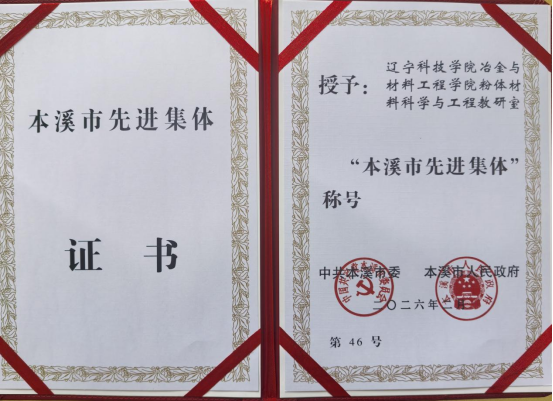 本溪市先进集体
证书
授予：
辽宁科技学院冶金与
材料工程学院粉体材
料科学与工程教研室
“本溪市先进集体”
称号
中共本溪市委 本溪市人民政府
二〇二六年二
第 46 号